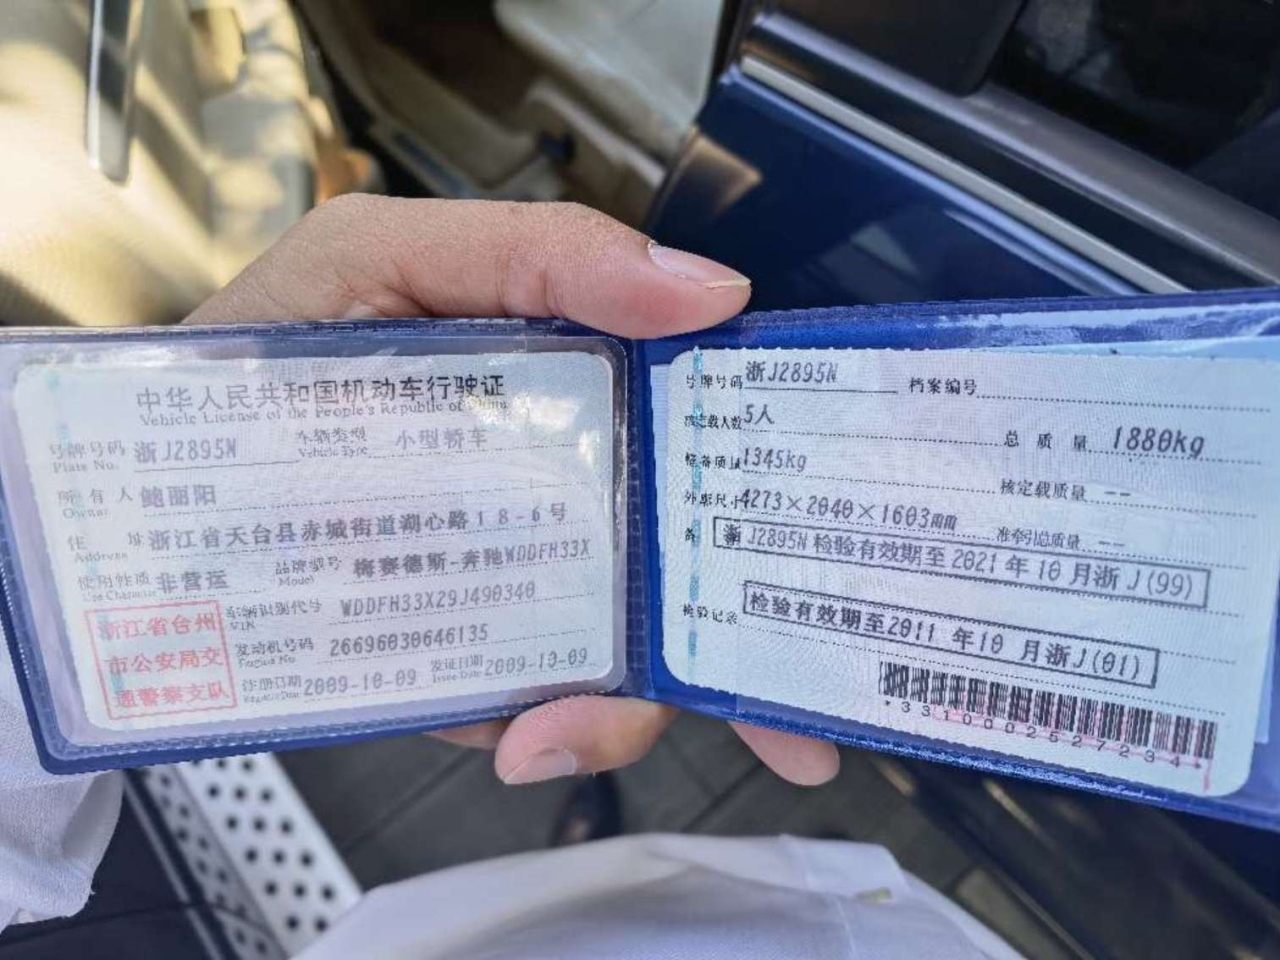 中华人民共和国机动车行驶证
Vehicle License of the People's Republic of China
号牌号码 浙J2895N 车辆类型 小型轿车
Plate No. Vehicle Type
所有人 鲍丽阳
Owner
住址 浙江省天台县赤城街道湖心路18-6号
Address
使用性质 非营运 品牌型号 梅赛德斯-奔驰WDDFH33X
Use Character Model
浙江省台州
市公安局交
通警察支队
车辆识别代号 WDDFH33X29J490340
VIN
发动机号码 26696030646135
Engine No.
注册日期 2009-10-09 发证日期 2009-10-09
Register Date Issue Date
号牌号码 浙J2895N 档案编号
核定载人数 5人 总质量 1880kg
整备质量 1345kg 核定载质量 --
外廓尺寸 4273×2040×1603mm 准牵引总质量 --
备 浙J2895N检验有效期至2021年10月浙J(99)
检验记录 检验有效期至2011年10月浙J(01)
*3310002527234*